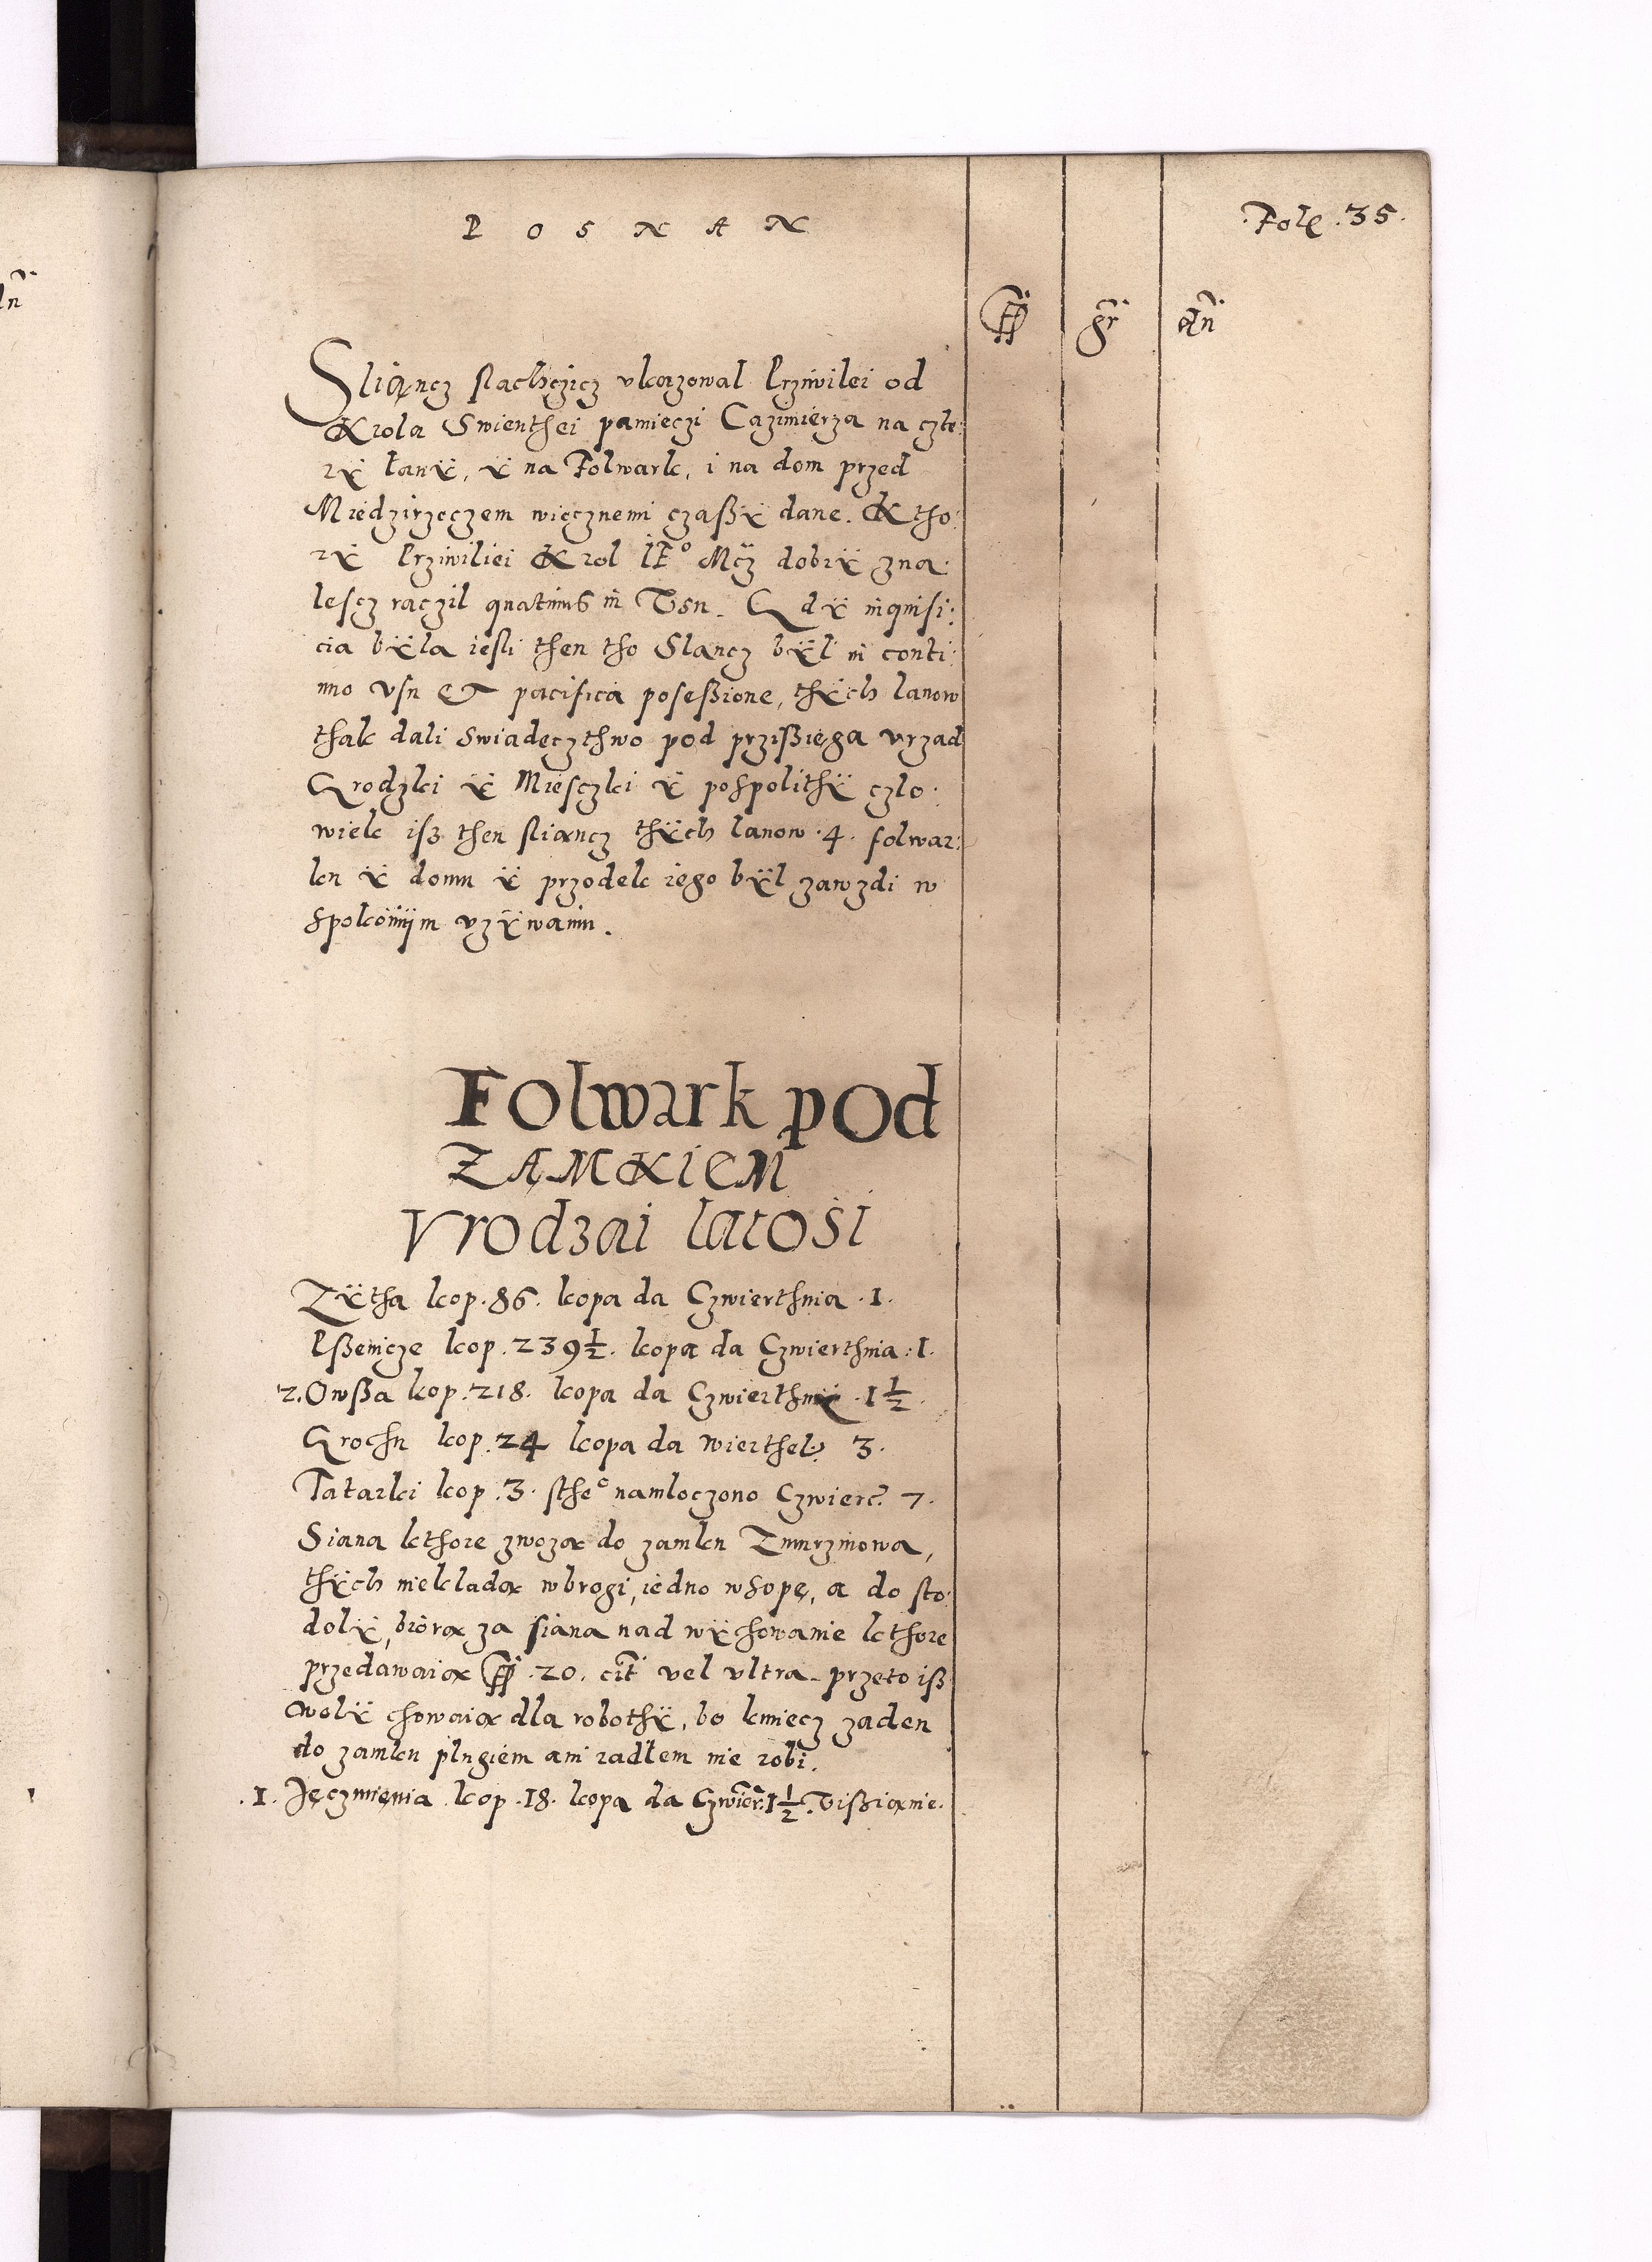 POSNAN
Fole .35.
ff gr dn
Sliąncz slachczicz vkazowal Przivilei od
Krola Swienthei pamieczi Cazimierza na czte:
rÿ łanÿ, ÿ na Folwark, i na dom przed
Miedzirzeczem wiecznemi czaßÿ dane. Ktho:
rÿ Prziviliei Krol JE° Mcz dobrÿ zna:
lescz raczil quatinus in Vsu. Gdÿ inquisi:
cia bÿla iesli then tho Slancz bÿl in conti:
nuo vsu et pacifica poseßione, thÿch lanow
thak dali swiadeczthwo pod przißięga vrzad
Grodzki ÿ Miesczki ÿ pospolithÿ czlo:
wiek isz then sliancz thÿch lanow .4. folwar:
ku ÿ domu ÿ przodek iego bÿl zawzdi w
spokoinÿm vzÿwaniu.
Folwark pod
ZAMKIEM
Vrodzai latosi
Zÿtha kop .86. kopa da Czwierthnia .1.
Pßenicze kop .239½. kopa da Czwierthnia .1.
2. Owßa kop .218. kopa da Czwierthnÿ .1½.
Grochu kop .24 kopa da wierthel. 3.
Tatarki kop .3. sthe° namloczono Czwierc. 7.
Siana kthore zwoza do zamku Zmurzinowa,
thÿch niekladą wbrogi, iedno wsopę, a do sto:
dolÿ, biorą za siana nad wÿchowanie kthore
przedawaią ff .20. cit vel vltra. przeto isz
wolÿ chowaią dla robothÿ, bo kmiecz zaden
do zamku plugiem ani radłem nie robi.
.1. Jęczmienia kop .18. kopa da Czwier. 1½.